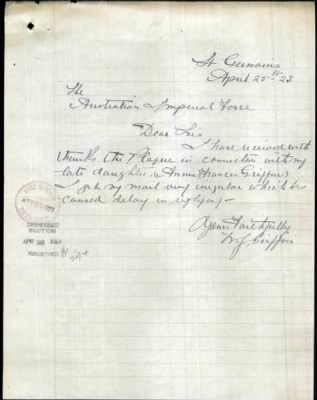 St Germains
April 25th 23
The
Australian Imperial Force
Dear Sirs
I have received with
thanks the Plaque in connection with my
late daughter (Annie Francis Griffin)
I get my mail very irregular which has
caused delay in replying -
Yours Faithfully
W J Griffin
SECTION